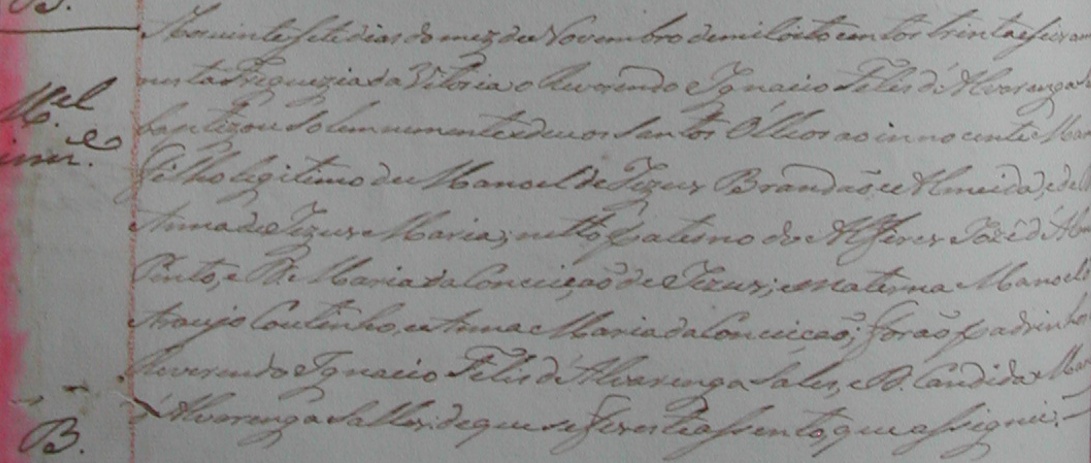 B.
Aos vinte sete dias do mez de Novembro de mil oito centos trinta e seis an
nesta Freguezia da Vitoria o Reverendo Ignacio Felis d'Alvarenga
M.el
baptizou solemnemente e deu os Santos Óllios ao innocente Ma
e
Filho legitimo de Manoel de Jezus Brandão e Almeida, e de
Anna de Jezus Maria; netto paterno do Alferes Jozé d'Al
Pinto, e D. Maria da Conceição de Jezus; e materna Manoel
Araujo Coutinho, e Anna Maria da Conceicão; forão padrinh
Reverendo Ignacio Felis d'Alvarenga Sales, e D. Candida Ma
B.
Alvarenga Salles: de que se fes este assento, que assignei.